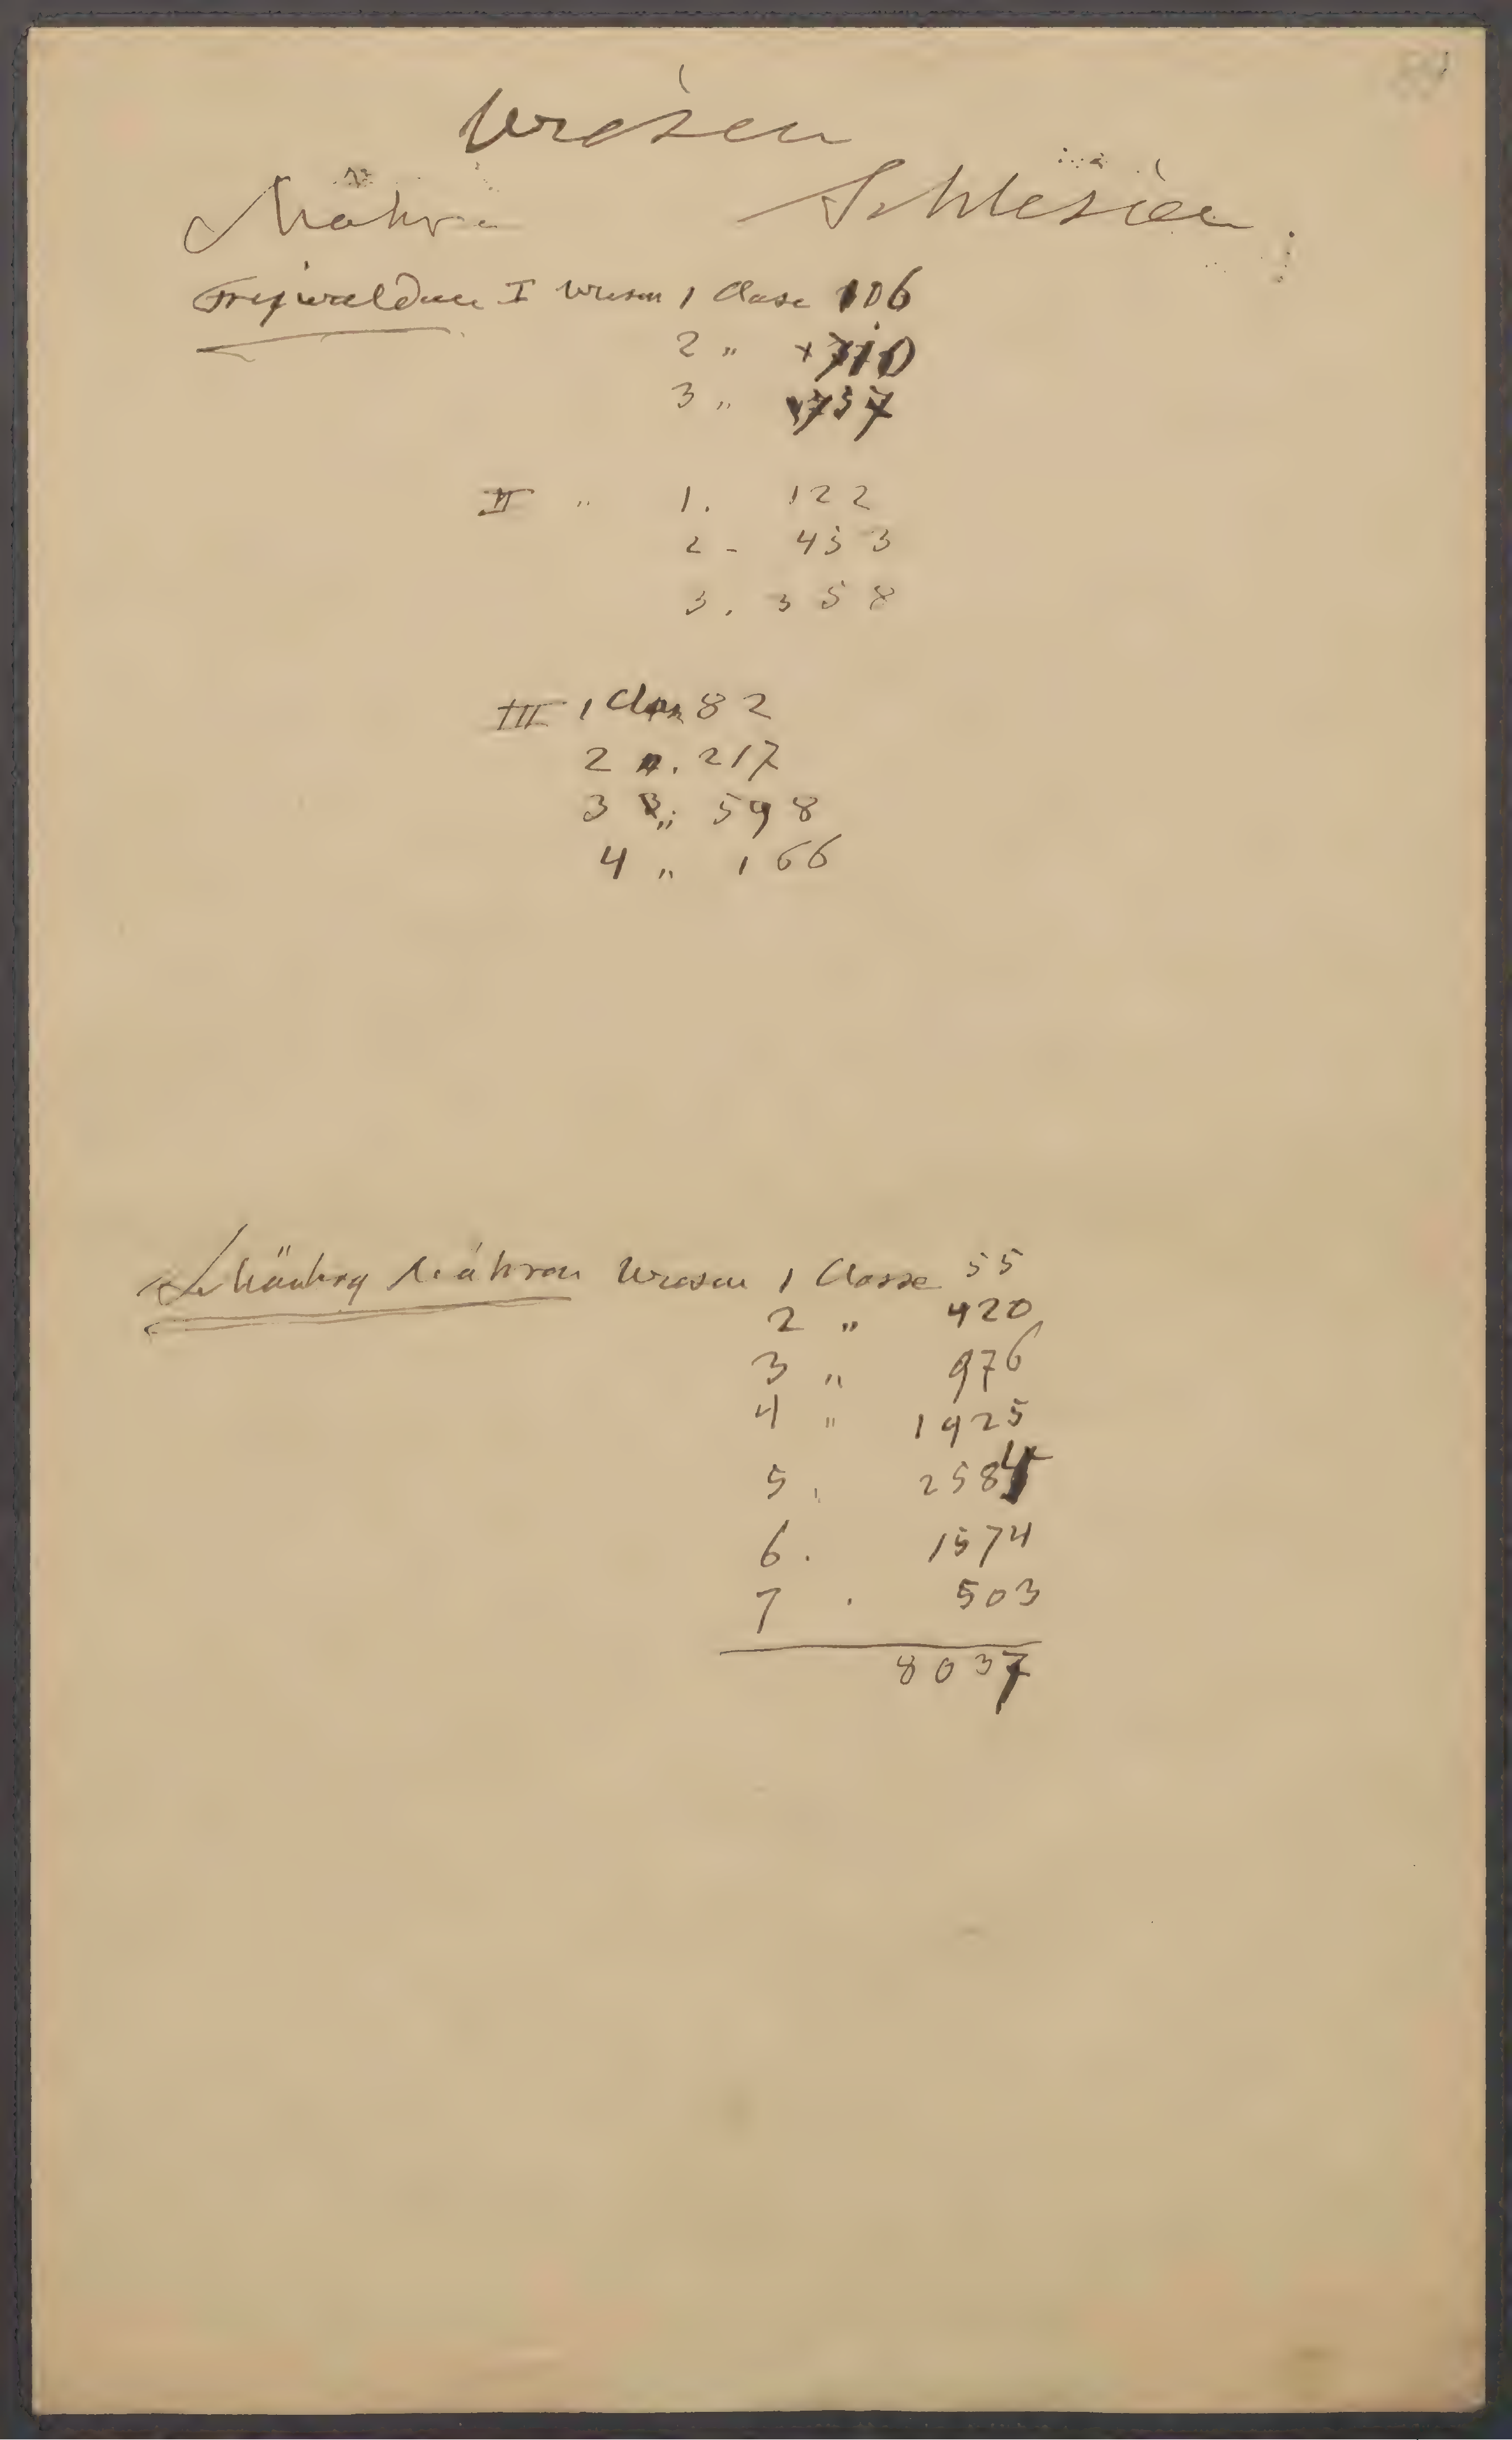 Wiesen
Mähren Schlesien.
Freywaldau I Wiesen 1 Classe 106
2 "
3 "
II " 1. 122
2 - 453
3. 358
III 1 Class 82
2 ". 217
3 " 598
4 " 166
Schönberg Mähren Wiesen 1 Classe 55
2 " 420
3 " 976
4 " 1925
5 . 2584
6 . 1574
7 . 503
8037